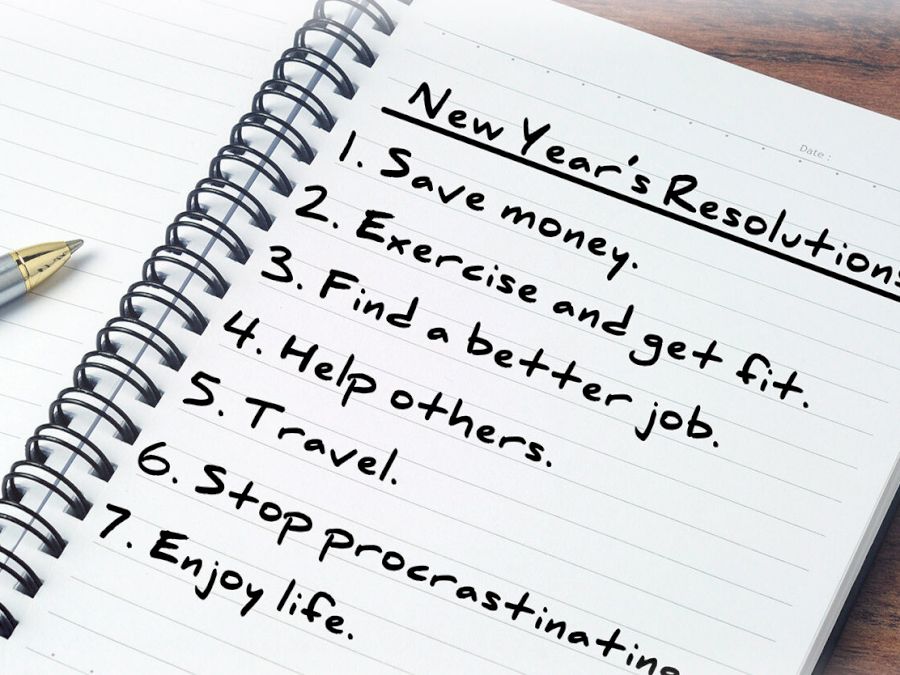 Date :
New Year's Resolutions
1. Save money.
2. Exercise and get fit.
3. Find a better job.
4. Help others.
5. Travel.
6. Stop procrastinating
7. Enjoy life.